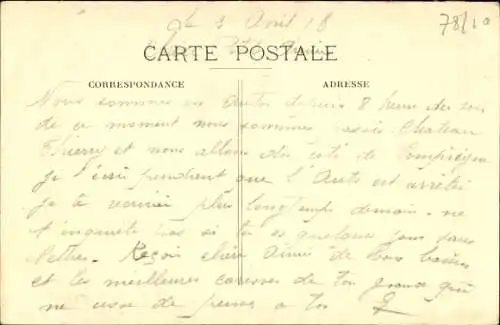 Le 3 Avril 18
78/10
CARTE POSTALE
CORRESPONDANCE
ADRESSE
Nous sommes en Auto depuis 8 heure du soir
de ce moment nous sommes passé Chateau
Thierry et nous allons du côté de Compiègne
je t'écris pendant que l'Auto est arrêté
je te écrirai plus longtemps demain. ne
t'inquiète pas si tu es quelques jours sans
lettre. Reçoit chère Aimée de bons baisers
et les meilleures caresses de ton grand qui
ne cesse de penser a toi